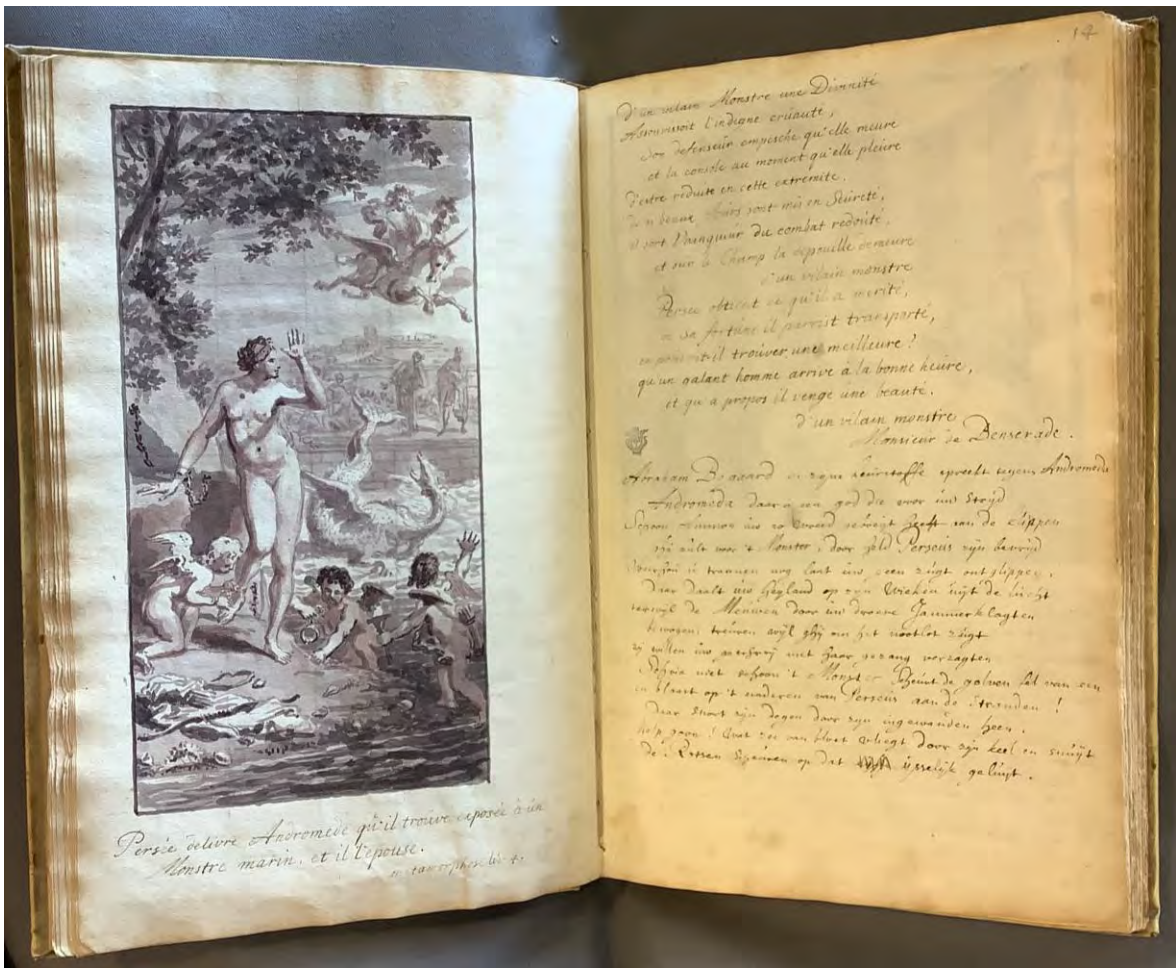 Persée delivre Andromede qu'il trouve exposée à un
Monstre marin, et il l'epouse.
metamorphose liv. 4.
14
D'un vilain Monstre une Divinité
Assouvissoit l'indigne crüauté,
Son defenseur empesche qu'elle meure
et la console au moment qu'elle pleure
D'estre reduite en cette extremité.
De si beaux jours sont mis en Seüreté,
il sort Vainqueur du combat redouté,
et sur le Champ la depouille demeure
d'un vilain monstre
Persée obtient ce qu'il a merité,
de sa fortune il paroit transporté,
en pouvoit-il trouver une meilleure?
qu'un galant homme arrive à la bonne heure,
et qu'a propos il venge une beauté.
d'un vilain monstre
Monsieur de Benserade.
Abraham Bogaard in zyne spreekt tegens Andromeda
Andromeda daar is een god die voor uw Stryd
Schoon uw zo wreed heeft aan de klippen
Hy valt voor 't Monster, door Perseus zyn bevryd
uw geen zugt ontslippen.
Daar daalt uw Heyland op zyn Wieken uyt de lucht
terwyl de Meuwen door uw droeve Jammerklagten
bewogen, treuren wyl ghy om het nootlot zugt
zy willen uw met haar gezang verzagten
niet schoon 't Monster de golven van een
en blaast op 't naderen van Perseus aan de Stranden!
Daar Snort zyn Degen door zyn ingewanden heen,
help goon! Wat zee van bloet vliegt door zyn keel en snuyt
de Rotsen op dat ysselyk geluyt.